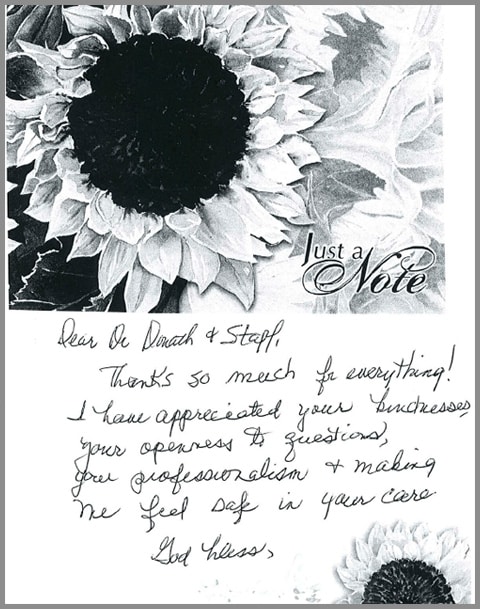 Just a
Note
Dear Dr Donath & Staff,
Thanks so much for everything!
I have appreciated your kindnesses,
your openness to questions,
your professionalism & making
me feel safe in your care
God bless,